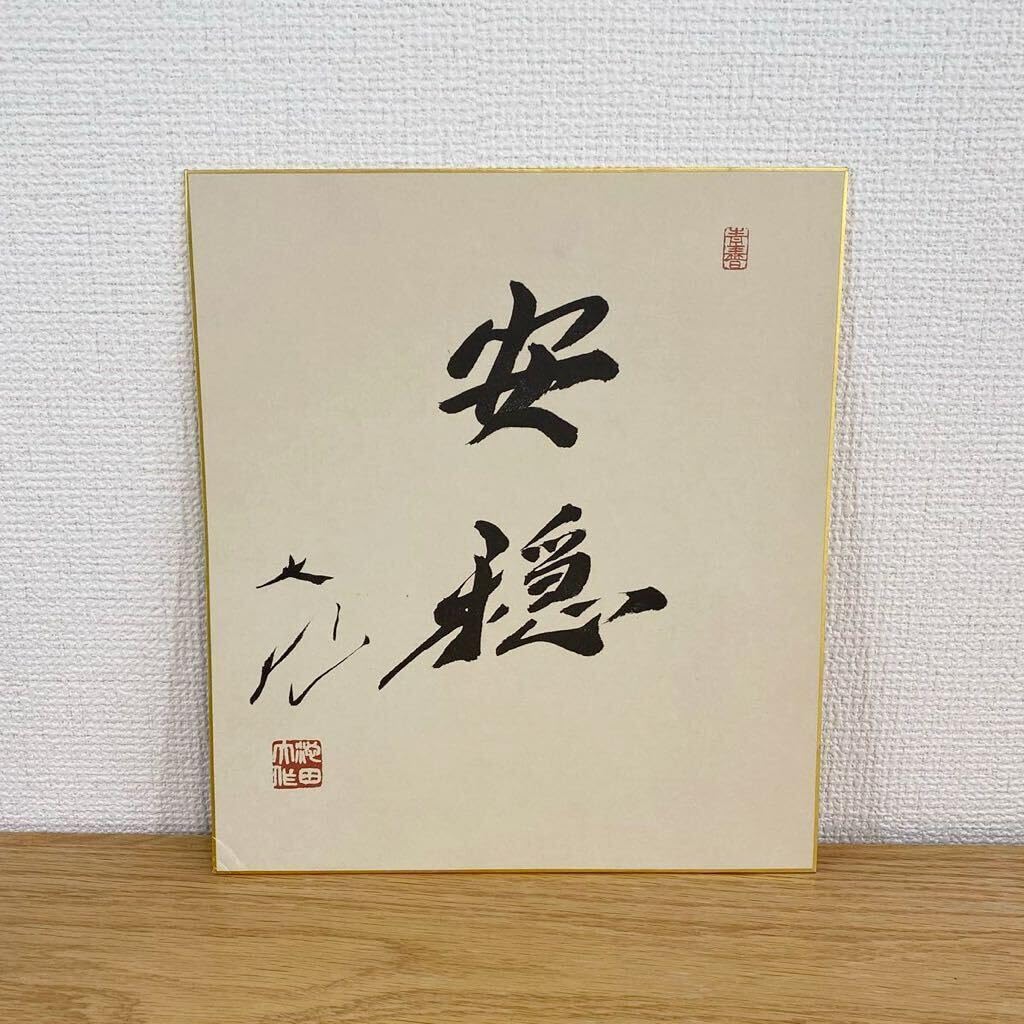 安穏
大作
池田
大作